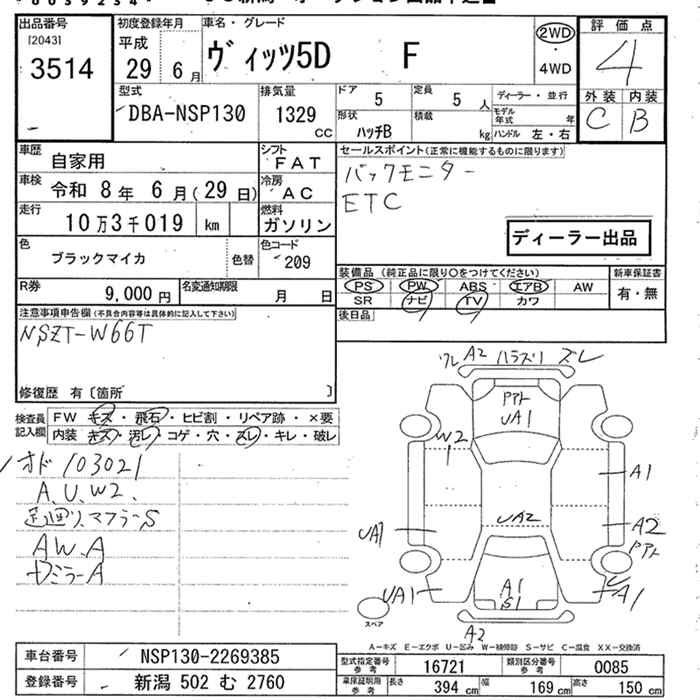 出品番号 初度登録年月 車名・グレード 評価点
[2043] 平成 ヴィッツ5D F 2WD 4
3514 29 6月 ・4WD
外装 内装
型式 排気量 ドア 5 定員 5人 ディーラー・並行 C B
DBA-NSP130 1329 CC 形状 ハッチB 積載 kg モデル年式 年
ハンドル 左・右
車歴 自家用 シフト FAT セールスポイント(正常に機能するものに限ります)
車検 令和 8年 6月(29日) 冷房 AC バックモニター
走行 10万3千019 km 燃料 ガソリン ETC
ディーラー出品
色 ブラックマイカ 色替 色コード 209
装備品 (純正品に限り○をつけてください) 新車保証書
R券 9,000円 名変通知期限 月 日 PS PW ABS エアB AW 有・無
SR ナビ TV カワ
注意事項申告欄(不具合内容等は具体的に記入して下さい) 後日品
NSZT-W66T
修復歴 有〔箇所 〕
検査員記入欄 FW キズ・飛石・ヒビ割・リペア跡・×要
内装 キズ・汚レ・コゲ・穴・スレ・キレ・破レ
オド103021
A、U、W2、
足廻リ、マフラーS
AW、A
セミラーA
ワレ A2 ハラズリ ズレ
アト
UA1
W2
1
A1
UA2
UA1
A2
アト
UA1
A1
S1
A1
A2
スペア
A-キズ E-エクボ U-凹み W-補修跡 S-サビ C-腐食 XX-交換済
車台番号 NSP130-2269385 型式指定番号 参考 16721 類別区分番号 参考 0085
登録番号 新潟 502 む 2760 車庫証明用 参考 長さ 394 cm 幅 169 cm 高さ 150 cm